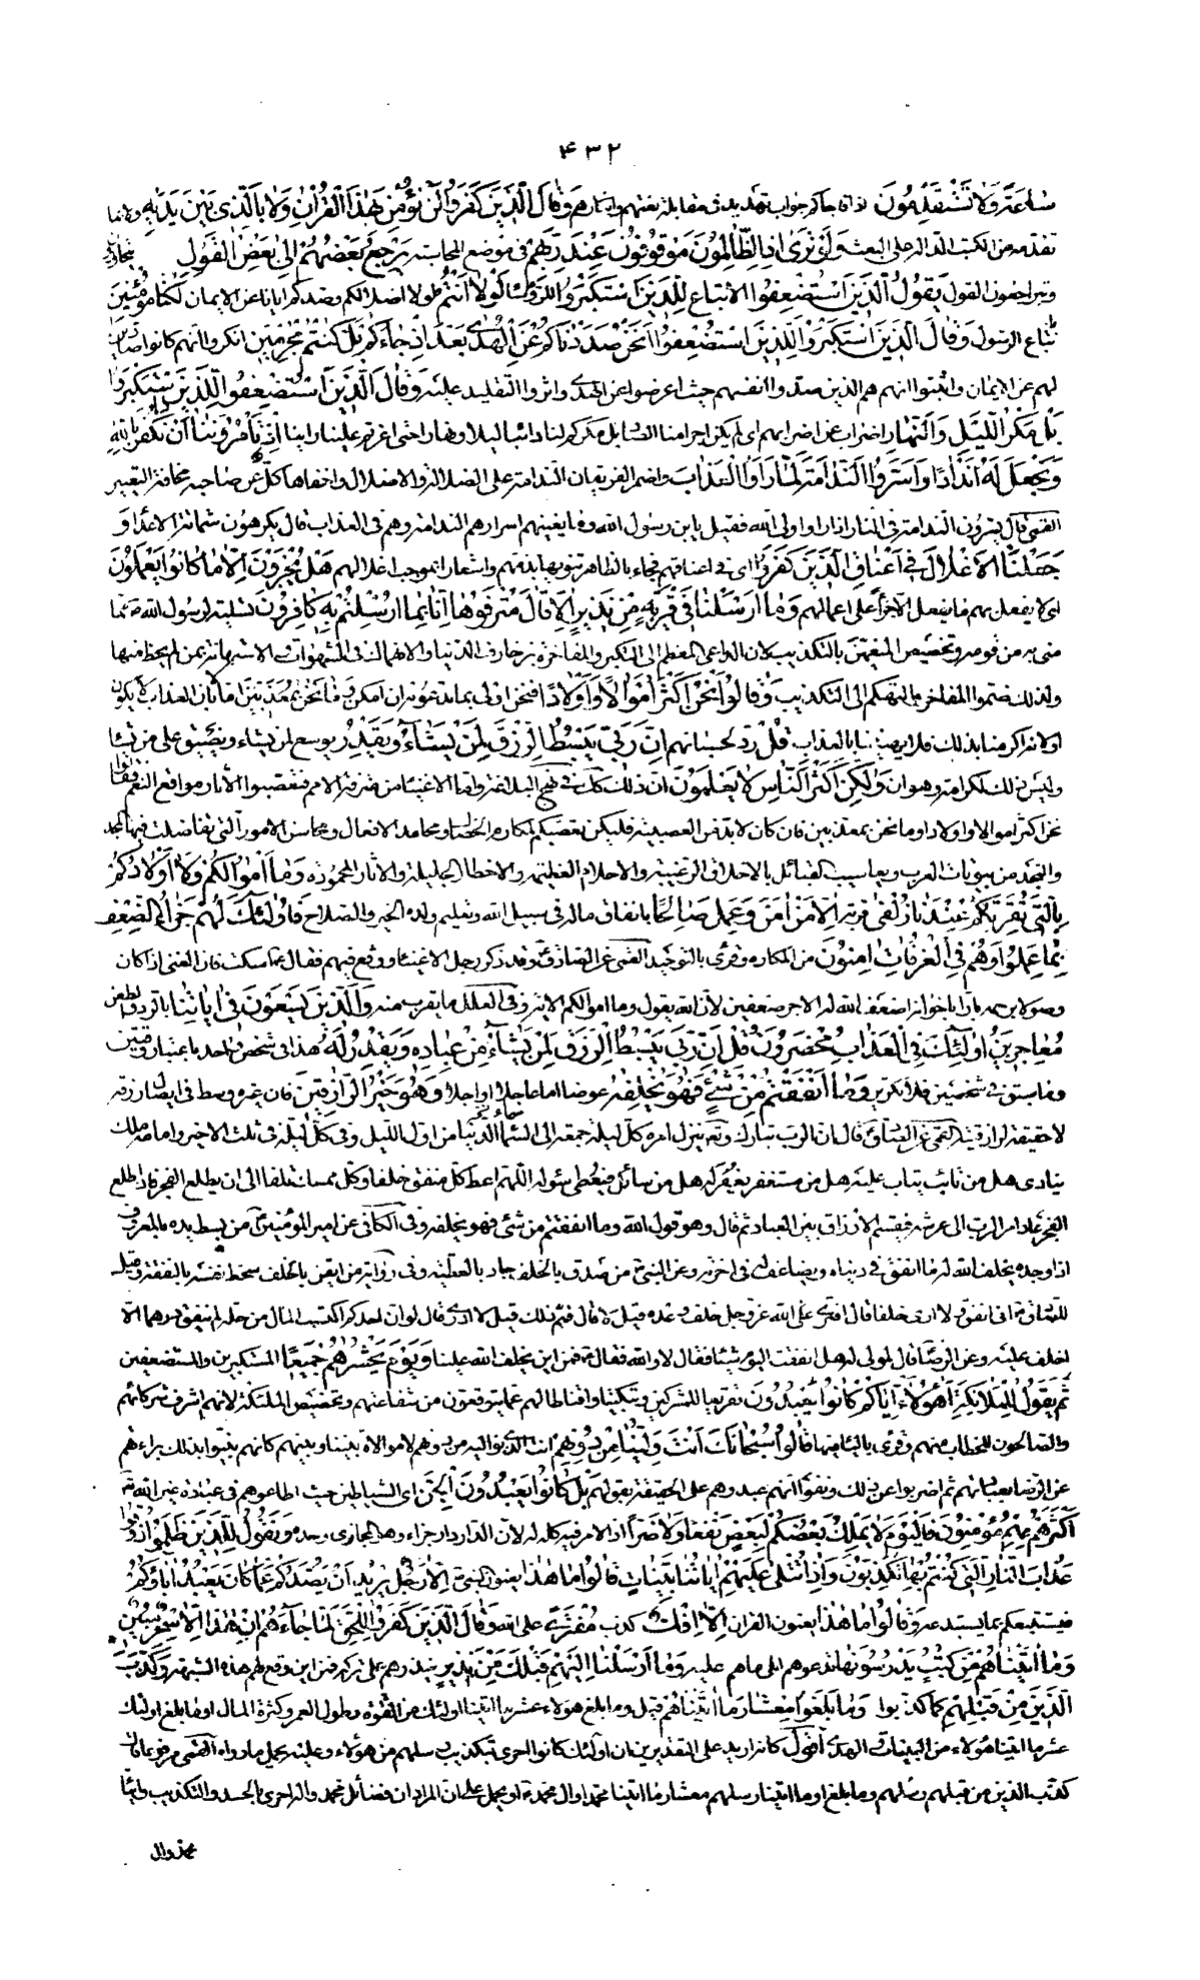 ۴۳۲
سٰاعَةً وَلٰا تَسْتَقْدِمُونَ اذا فاجاكم جواب تهديد في مقابلة تعنتهم وانكارهم وَقٰالَ الَّذِينَ كَفَرُوا لَنْ نُؤْمِنَ بِهٰذَا الْقُرْاٰنِ وَلٰا بِالَّذِي بَيْنَ يَدَيْهِ ولا بما
تقدمه من الكتب الدالة على البعث وَلَوْ تَرىٰ اِذِ الظّٰالِمُونَ مَوْقُوفُونَ عِنْدَ رَبِّهِمْ في موضع المحاسبة يَرْجِعُ بَعْضُهُمْ اِلىٰ بَعْضٍ الْقَوْلَ يتحاورون
ويتراجعون القول يَقُولُ الَّذِينَ اسْتُضْعِفُوا الاتباع لِلَّذِينَ اسْتَكْبَرُوا الرؤساء لَوْلٰا اَنْتُمْ لولا اضلالكم وصدكم ايانا عن الايمان لَكُنّٰا مُؤْمِنِينَ
باتباع الرسول وَقٰالَ الَّذِينَ اسْتَكْبَرُوا لِلَّذِينَ اسْتُضْعِفُوا اَنَحْنُ صَدَدْنٰاكُمْ عَنِ الْهُدىٰ بَعْدَ اِذْ جٰاءَكُمْ بَلْ كُنْتُمْ مُجْرِمِينَ انكروا انهم كانوا صادين
لهم عن الايمان واثبتوا انهم هم الذين صدوا انفسهم حيث اعرضوا عن الهدى واثروا التقليد عليه وَقٰالَ الَّذِينَ اسْتُضْعِفُوا لِلَّذِينَ اسْتَكْبَرُوا
بَلْ مَكْرُ اللَّيْلِ وَالنَّهٰارِ اضراب عن اضرابهم اي لم يكن اجرامنا الصاد بل مكركم لنا دائبا ليلا ونهارا حتى اغرتم علينا راينا اِذْ تَأْمُرُونَنٰا اَنْ نَكْفُرَ بِاللّٰهِ
وَنَجْعَلَ لَهُ اَنْدٰادًا وَاَسَرُّوا النَّدٰامَةَ لَمّٰا رَاَوُا الْعَذٰابَ واضمر الفريقان الندامة على الضلال والاضلال واخفاها كل عن صاحبه مخافة التعيير
القمي قال يسرون الندامة في النار اذا راوا ولي الله فقيل يا بن رسول الله وما يغنيهم اسرارهم الندامة وهم في العذاب قال يكرهون شماتة الاعداء وَ
جَعَلْنَا الْاَغْلٰالَ فِي اَعْنٰاقِ الَّذِينَ كَفَرُوا اي في اعناقهم فجاء بالظاهر تنويها بذمهم واشعارا بموجب اغلالهم هَلْ يُجْزَوْنَ اِلّٰا مٰا كٰانُوا يَعْمَلُونَ
اي لا يفعل بهم ما يفعل الا جزاء على اعمالهم وَمٰا اَرْسَلْنٰا فِي قَرْيَةٍ مِنْ نَذِيرٍ اِلّٰا قٰالَ مُتْرَفُوهٰا اِنّٰا بِمٰا اُرْسِلْتُمْ بِهِ كٰافِرُونَ تسلية لرسول الله ص مما
منى به من قومه وتخصيص المتنعمين بالتكذيب لان الداعي المعظم الى التكبر والمفاخرة بزخارف الدنيا والانهماك في الشهوات والاستهانة بمن لم يحظ منها
ولذلك ضموا المفاخر والتهكم الى التكذيب وَقٰالُوا نَحْنُ اَكْثَرُ اَمْوٰالًا وَاَوْلٰادًا فنحن اولى بما تدعونه ان امكن وَمٰا نَحْنُ بِمُعَذَّبِينَ اما لان العذاب لا يكون
او لانه اكرمنا بذلك فلا يهيننا بالعذاب قُلْ رد لحسبانهم اِنَّ رَبِّي يَبْسُطُ الرِّزْقَ لِمَنْ يَشٰاءُ وَيَقْدِرُ يوسع لمن يشاء ويضيق على من يشاء
وليس ذلك لكرامة وهوان وَلٰكِنَّ اَكْثَرَ النّٰاسِ لٰا يَعْلَمُونَ ان ذلك كذلك في نهج البلاغة واما الاغنياء من مترفة الامم فتعصبوا لاثار مواقع النعم فقالوا
نحن اكثر اموالا واولادا وما نحن بمعذبين فان كان لا بد من العصبية فليكن تعصبكم لمكارم الخصال ومحامد الافعال ومحاسن الامور التي تفاضلت فيها المجد
والنجد من بيوتات العرب ويعاسيب القبائل بالاخلاق الرغيبة والاحلام العظيمة والاخطار الجليلة والاثار المحمودة وَمٰا اَمْوٰالُكُمْ وَلٰا اَوْلٰادُكُمْ
بِالَّتِي تُقَرِّبُكُمْ عِنْدَنٰا زُلْفىٰ قربة اِلّٰا مَنْ اٰمَنَ وَعَمِلَ صٰالِحًا بانفاق ماله في سبيل الله وتعليم ولده الخير والصلاح فَاُولٰئِكَ لَهُمْ جَزٰاءُ الضِّعْفِ
بِمٰا عَمِلُوا وَهُمْ فِي الْغُرُفٰاتِ اٰمِنُونَ من المكاره وقرئ بالتوحيد القمي عن الصادق وقد ذكر رجل الاغنياء ووقع فيهم فقال ع اسكت فان الغني اذا كان
وصولا برحمه بارا باخوانه اضعف الله له الاجر ضعفين لان الله يقول وما اموالكم الاية وفي العلل ما يقرب منه وَالَّذِينَ يَسْعَوْنَ فِي اٰيٰاتِنٰا بالرد والطعن
مُعٰاجِزِينَ اُولٰئِكَ فِي الْعَذٰابِ مُحْضَرُونَ قُلْ اِنَّ رَبِّي يَبْسُطُ الرِّزْقَ لِمَنْ يَشٰاءُ مِنْ عِبٰادِهِ وَيَقْدِرُ لَهُ هذا في شخص واحد باعتبار وقتين
وما سبق في شخصين فلا تكرير وَمٰا اَنْفَقْتُمْ مِنْ شَيْءٍ فَهُوَ يُخْلِفُهُ عوضا اما عاجلا او اجلا وَهُوَ خَيْرُ الرّٰازِقِينَ فان غيره وسط في ايصال رزقه
لا حقيقة لرازقيته القمي عن الصادق قال ان الرب تبارك وتعالى ينزل امره كل ليلة جمعة الى السماء الدنيا من اول الليل وفي كل ليلة في ثلث الاخير وامامه ملك
ينادي هل من تائب يتاب عليه هل من مستغفر يغفر له هل من سائل فيعطى سؤله اللهم اعط كل منفق خلفا وكل ممسك تلفا الى ان يطلع الفجر فاذا طلع
الفجر عاد امر الرب الى عرشه فيقسم الارزاق بين العباد ثم قال وهو قول الله وما انفقتم من شيء فهو يخلفه وفي الكافي عن امير المؤمنين من بسط يده بالمعروف
اذا وجده يخلف الله له ما انفق في دنياه ويضاعف له في اخرته وعن النبي ص من صدق بالخلف جاد بالعطية وفي رواية من ايقن بالخلف سخط نفسه بالنفقة وقيل
للصادق ع اني انفق ولا ارى خلفا قال افترى على الله عز وجل خلف وعده قيل لا قال فمم ذلك قيل لا ادري قال لو ان احدكم اكتسب المال من حله لم ينفق درهما الا
اخلف عليه وعن الرضا قال لمولى له هل انفقت اليوم شيئا فقال لا والله فقال ع فمن اين يخلف الله علينا وَيَوْمَ يَحْشُرُهُمْ جَمِيعًا المستكبرين والمستضعفين
ثُمَّ يَقُولُ لِلْمَلٰائِكَةِ اَهٰؤُلٰاءِ اِيّٰاكُمْ كٰانُوا يَعْبُدُونَ تقريعا للمشركين وتبكيتا واقناطا لهم عما يتوقعون من شفاعتهم وتخصيص الملائكة لانهم اشرف شركائهم
والصالحون للخطاب منهم وقرئ بالياء فيهما قٰالُوا سُبْحٰانَكَ اَنْتَ وَلِيُّنٰا مِنْ دُونِهِمْ انت الذي نواليه من دونهم لا موالاة بيننا وبينهم كانهم بينوا بذلك براءتهم
عن الرضا بعبادتهم ثم اضربوا عن ذلك ونفوا انهم عبدوهم على الحقيقة بقولهم بَلْ كٰانُوا يَعْبُدُونَ الْجِنَّ اي الشياطين حيث اطاعوهم في عبادة غير الله
اَكْثَرُهُمْ بِهِمْ مُؤْمِنُونَ فَالْيَوْمَ لٰا يَمْلِكُ بَعْضُكُمْ لِبَعْضٍ نَفْعًا وَلٰا ضَرًّا اذ الامر فيه كله له لان الدار دار جزاء وهو المجازي وحده وَنَقُولُ لِلَّذِينَ ظَلَمُوا ذُوقُوا
عَذٰابَ النّٰارِ الَّتِي كُنْتُمْ بِهٰا تُكَذِّبُونَ وَاِذٰا تُتْلىٰ عَلَيْهِمْ اٰيٰاتُنٰا بَيِّنٰاتٍ قٰالُوا مٰا هٰذٰا يعنون النبي ص اِلّٰا رَجُلٌ يُرِيدُ اَنْ يَصُدَّكُمْ عَمّٰا كٰانَ يَعْبُدُ اٰبٰاؤُكُمْ
فيستتبعكم بما يستبدعه وَقٰالُوا مٰا هٰذٰا يعنون القران اِلّٰا اِفْكٌ كذب مُفْتَرىً على الله وَقٰالَ الَّذِينَ كَفَرُوا لِلْحَقِّ لَمّٰا جٰاءَهُمْ اِنْ هٰذٰا اِلّٰا سِحْرٌ مُبِينٌ
وَمٰا اٰتَيْنٰاهُمْ مِنْ كُتُبٍ يَدْرُسُونَهٰا تدعوهم الى ما هم عليه وَمٰا اَرْسَلْنٰا اِلَيْهِمْ قَبْلَكَ مِنْ نَذِيرٍ ينذرهم على تركه فمن اين وقع لهم هذه الشبهة وَكَذَّبَ
الَّذِينَ مِنْ قَبْلِهِمْ كما كذبوا وَمٰا بَلَغُوا مِعْشٰارَ مٰا اٰتَيْنٰاهُمْ قيل وما بلغ هؤلاء عشر ما اتينا اولئك من القوة وطول العمر وكثرة المال او ما بلغ اولئك
عشر ما اتينا هؤلاء من البينات والهدى اقول كانه اريد على التقديرين ان اولئك كانوا احرى بتكذيب رسلهم من هؤلاء وعليه يحمل ما رواه القمي مرفوعا قال
كذب الذين من قبلهم رسلهم وما بلغ اوما اتينا رسلهم معشار ما اتينا محمدا وال محمد ص او يحمل على ان المراد ان فضائل محمد واله احرى بالحسد والتكذيب
محمد وال